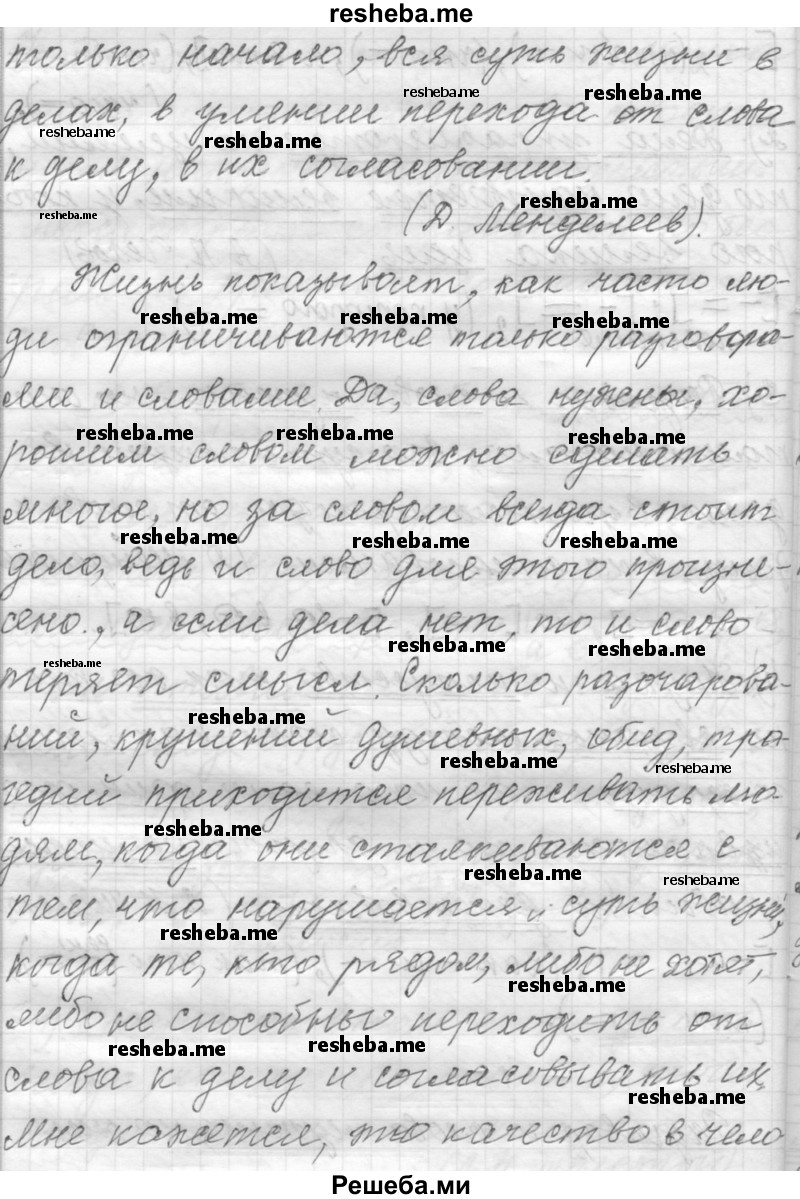 resheba.me
только начало, вся суть жизни в
resheba.me resheba.me
делах, в умении перехода от слова
resheba.me resheba.me
к делу, в их согласовании.
resheba.me resheba.me
(Д. Менделеев).
Жизнь показывает, как часто лю-
resheba.me resheba.me resheba.me
ди ограничиваются только разговора-
ми и словами. Да, слова нужны, хо-
resheba.me resheba.me resheba.me
рошим словом можно сделать
многое, но за словом всегда стоит
resheba.me resheba.me resheba.me
дело, ведь и слово для этого произне-
сено., а если дела нет, то и слово
resheba.me resheba.me resheba.me
теряет смысл. Сколько разочарова-
resheba.me
ний, крушений душевных, обид, тра-
resheba.me resheba.me
гедий приходится переживать лю-
resheba.me
дям, когда они сталкиваются с
resheba.me resheba.me
тем, что нарушается суть жизни,
resheba.me
когда те, кто рядом, либо не хотят,
resheba.me
либо не способны переходить от
resheba.me resheba.me
слова к делу и согласовывать их.
resheba.me
Мне кажется, это качество в чело
Решеба.ми